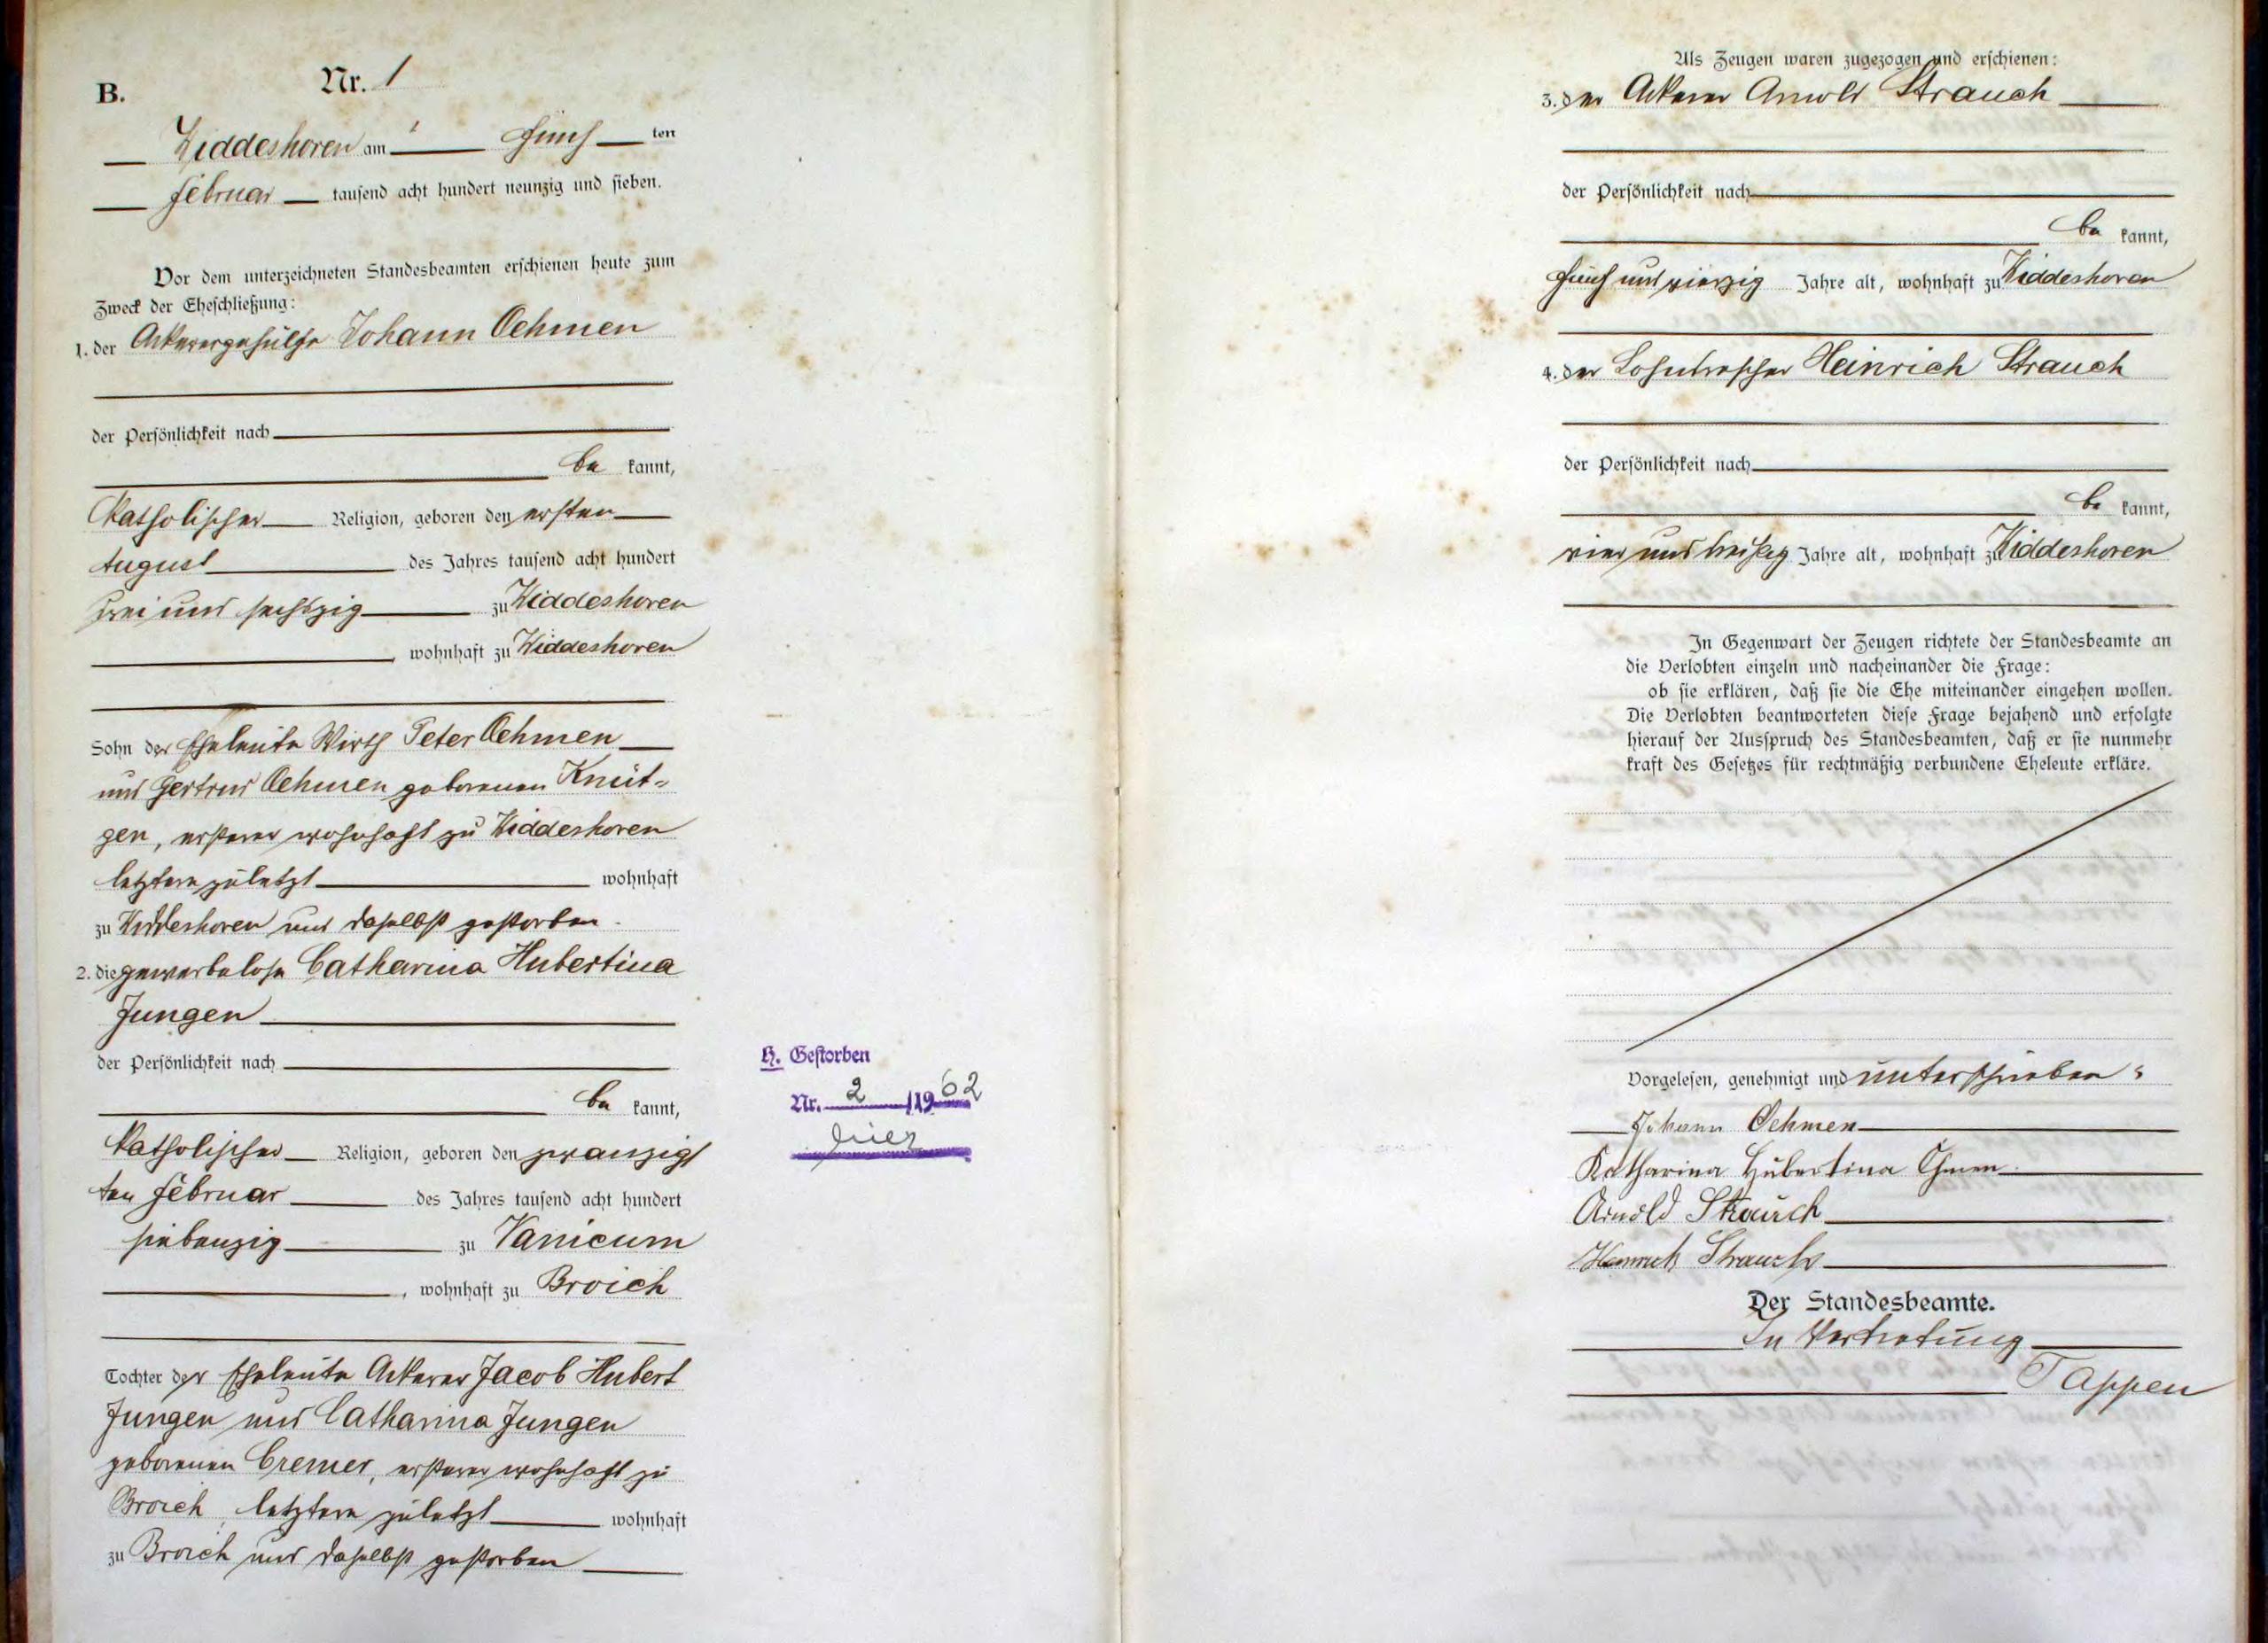 B.
Nr. 1
Widdeshoven am fünf ten
Februar tausend acht hundert neunzig und sieben.
Vor dem unterzeichneten Standesbeamten erschienen heute zum
Zweck der Eheschließung:
1. der Ackerergehülfe Johann Oehmen
der Persönlichkeit nach
be kannt,
katholischer Religion, geboren den ersten
August des Jahres tausend acht hundert
zwei und sechszig zu Widdeshoven
, wohnhaft zu Widdeshoven
Sohn der Eheleute Wirth Peter Oehmen
und Gertrud Oehmen geborenen Knüt-
gen, ersterer wohnhaft zu Widdeshoven
letztere zuletzt wohnhaft
zu Widdeshoven und daselbst gestorben.
2. die gewerbelose Catharina Hubertina
Jungen
der Persönlichkeit nach
be kannt,
katholischer Religion, geboren den zwanzig
ten Februar des Jahres tausend acht hundert
siebenzig zu Vanicum
, wohnhaft zu Broich
Tochter der Eheleute Ackerer Jacob Hubert
Jungen und Catharina Jungen
geborenen Cremer, ersterer wohnhaft zu
Broich, letztere zuletzt wohnhaft
zu Broich und daselbst gestorben
H. Gestorben
Nr. 2 /1962
hier
Als Zeugen waren zugezogen und erschienen:
3. der Ackerer Arnold Strauch
der Persönlichkeit nach
be kannt,
fünf und vierzig Jahre alt, wohnhaft zu Widdeshoven
4. der Lohndrescher Heinrich Strauch
der Persönlichkeit nach
be kannt,
vier und dreißig Jahre alt, wohnhaft zu Widdeshoven
In Gegenwart der Zeugen richtete der Standesbeamte an
die Verlobten einzeln und nacheinander die Frage:
ob sie erklären, daß sie die Ehe miteinander eingehen wollen.
Die Verlobten beantworteten diese Frage bejahend und erfolgte
hierauf der Ausspruch des Standesbeamten, daß er sie nunmehr
kraft des Gesetzes für rechtmäßig verbundene Eheleute erkläre.
Vorgelesen, genehmigt und unterschrieben:
Johann Oehmen
Katharina Hubertina
Arnold Strauch
Heinrich Strauch
Der Standesbeamte.
In Vertretung
Tappen